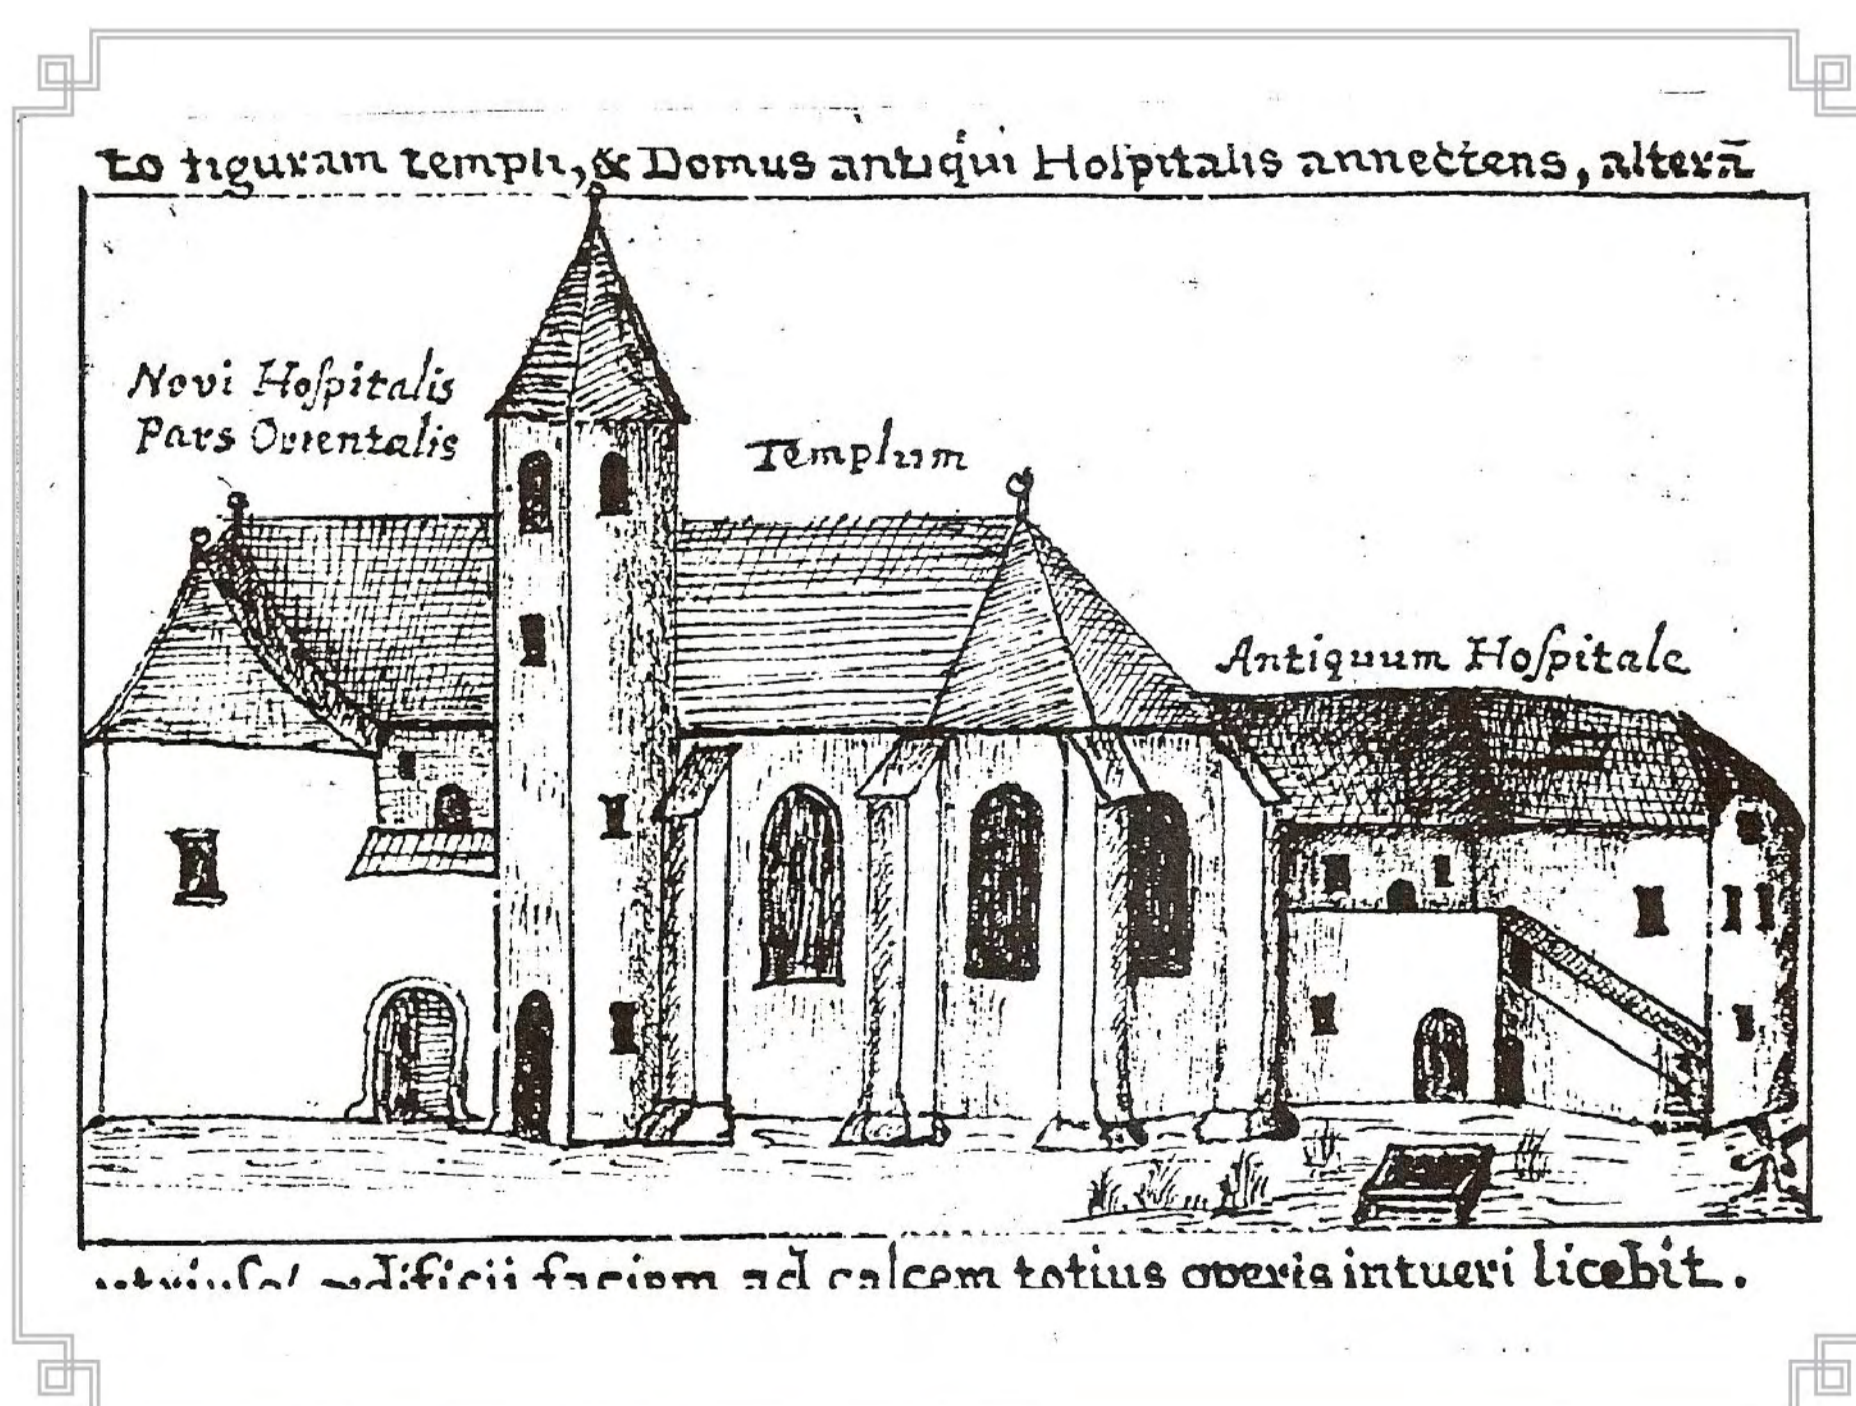 to figuram templi, & Domus antiqui Hoſpitalis annectens, alterā
Novi Hoſpitalis
Pars Orientalis
Templum
Antiquum Hoſpitale
ædificii faciem ad calcem totius operis intueri licebit.